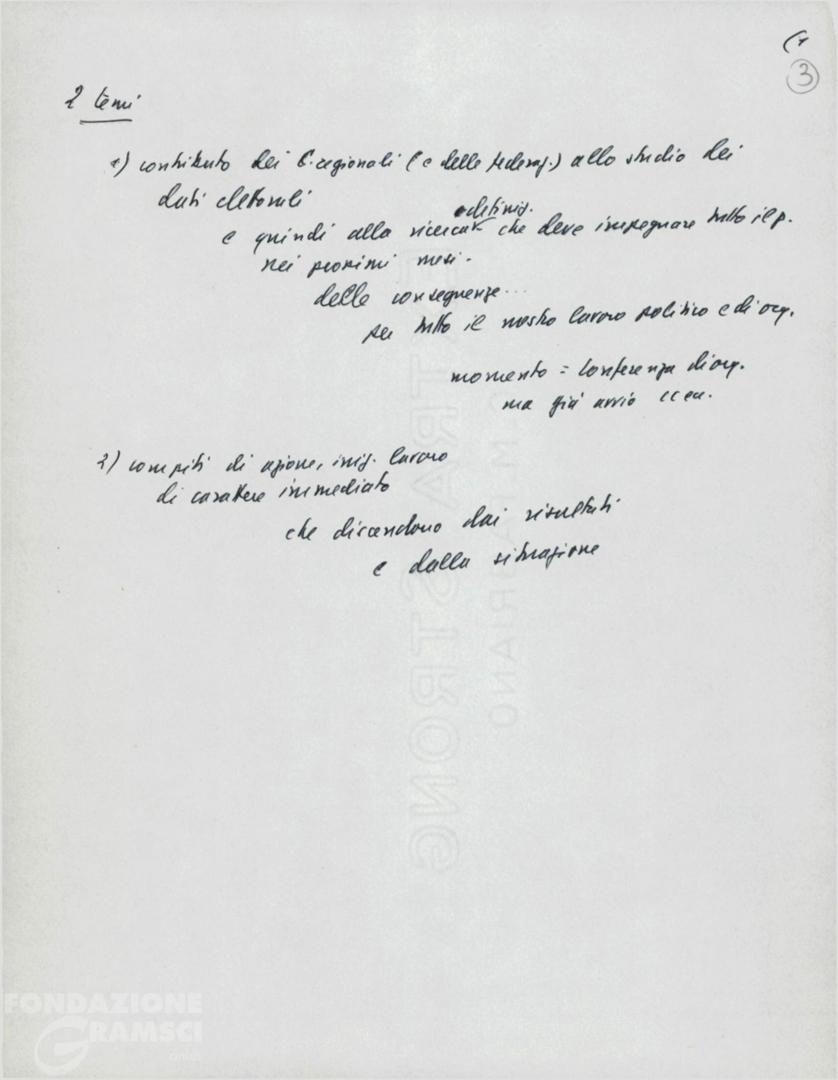 3
2 temi
1) contributo dei C. regionali (e delle federaz.) allo studio dei
dati elettorali
e definiz.
e quindi alla ricerca che deve impegnare tutto il p.
nei prossimi mesi.
delle conseguenze...
per tutto il nostro lavoro politico e di org.
momento = Conferenza di org.
ma già avvio
2) compiti di azione, iniz. lavoro
di carattere immediato
che discendono dai risultati
e dalla situazione
EXTRA STRONG
FABRIANO
FONDAZIONE
GRAMSCI
onlus